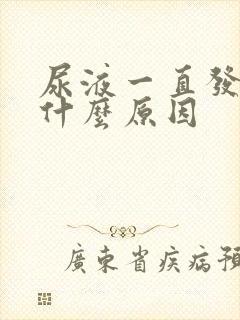 尿液一直發
什麼原因
廣東省疾病預